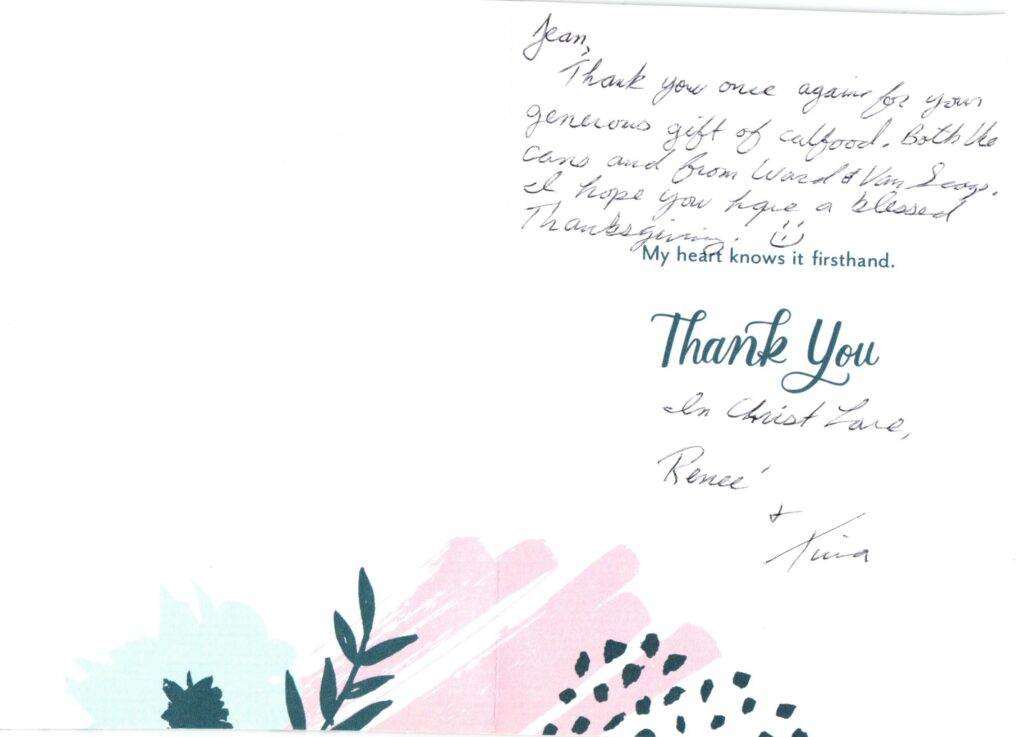 Jean,
Thank you once again for your
generous gift of catfood. Both the
cans and from Ward & Van Scoy.
I hope you have a blessed
Thanksgiving.
My heart knows it firsthand.
Thank You
In Christ Love,
Reneé
+